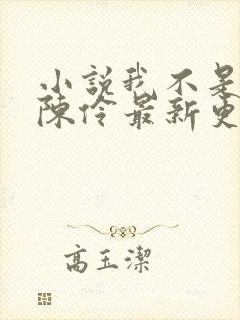 小説我不是
陳伶最新更
高玉潔